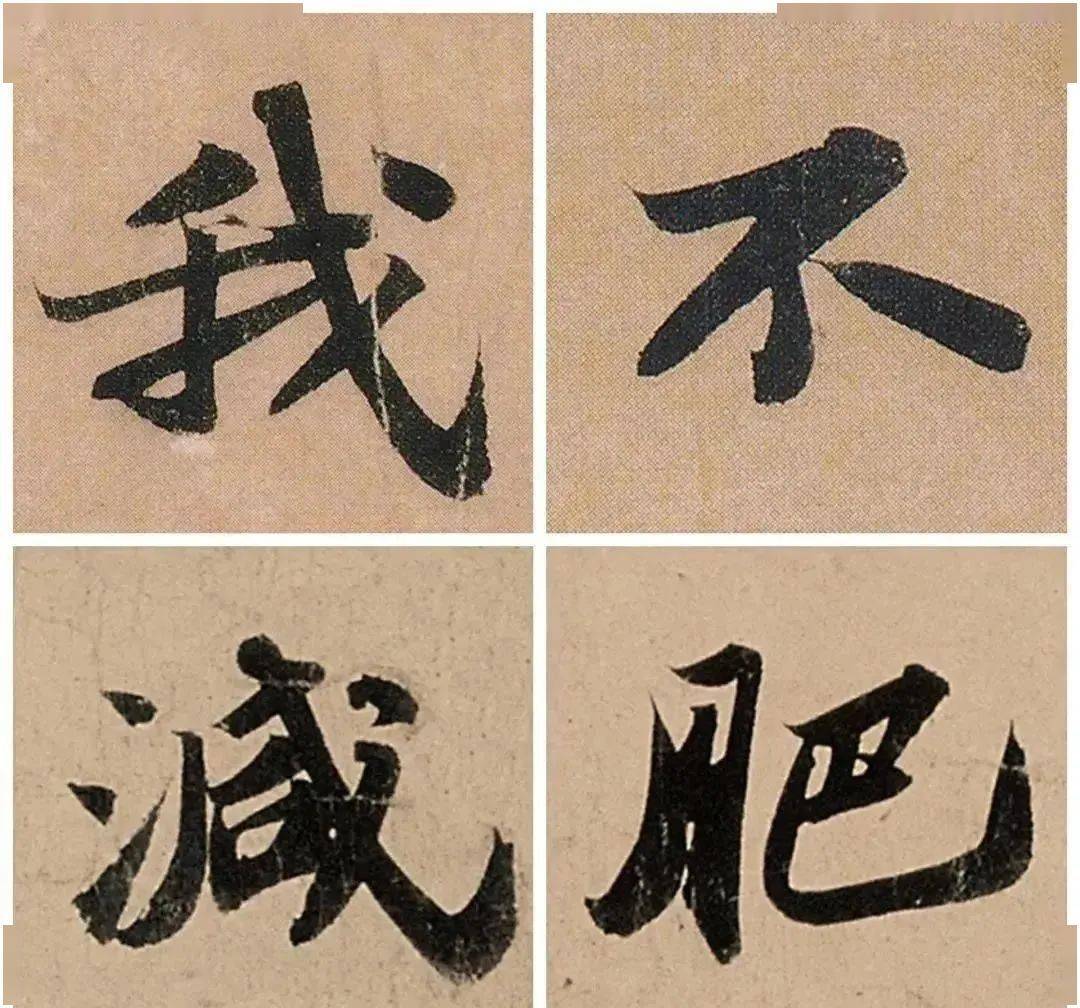 我不
減肥